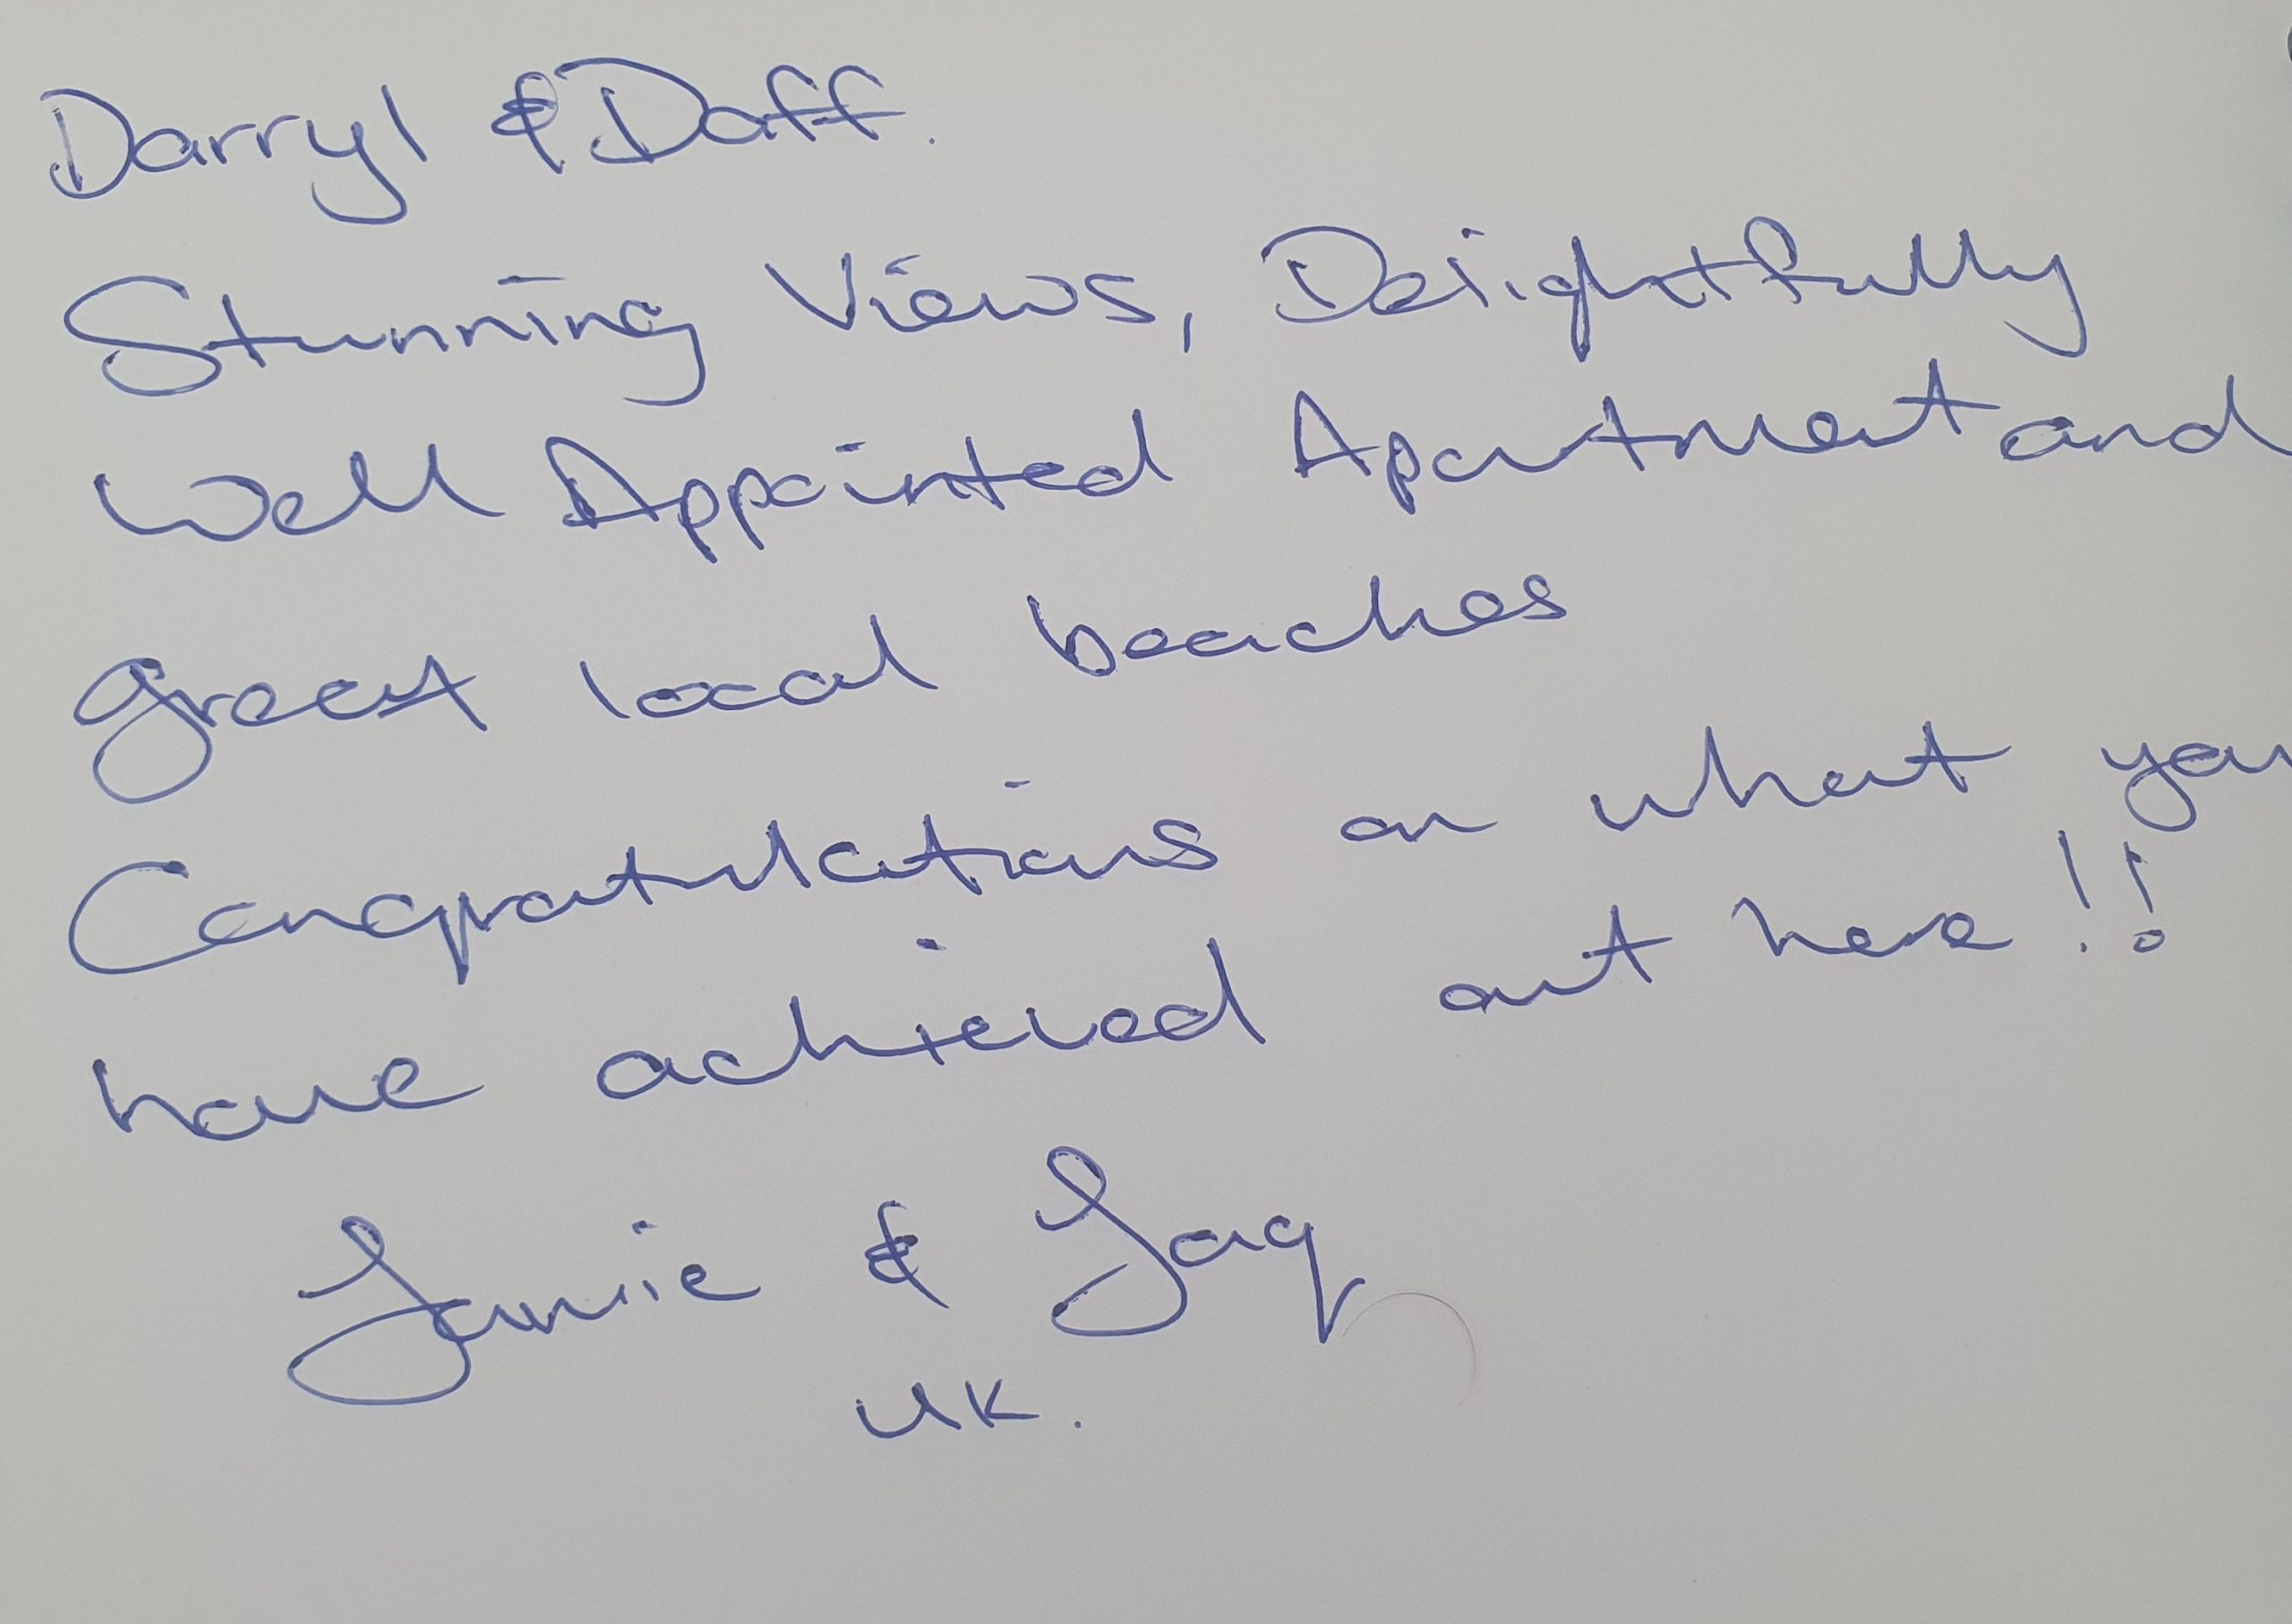 Darryl & Daff.
Stunning Views, Delightfully
Well Appointed Apartment and
great local beaches
Congratulations on what you
have achieved out here!!
Jamie & Jaq
UK.